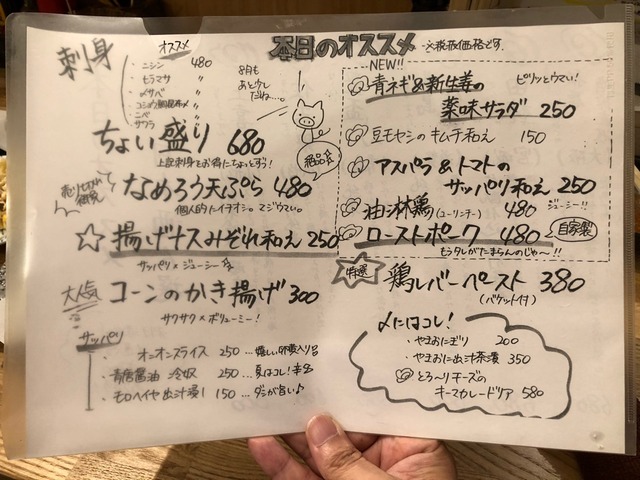 本日のオススメ
刺身
オススメ
・ニシン 480
・ヒラマサ 〃
・〆サバ 〃
・コショウ鯛昆布〆 〃
・ニベ 〃
・サワラ 〃
8月も
あと少し
だね…。
ちょい盛り 680
上記刺身をお得にちょっとずつ!
絶品☆
なめろう天ぷら 480
個人的にイチオシ。マジウマい。
揚げナスみぞれ和え 250
サッパリ×ジューシー
大人気
コーンのかき揚げ 300
サクサク×ボリューミー!
サッパリ
・オニオンスライス 250 …嬉しい卵黄入り
・青唐醤油 冷奴 250 …夏はコレ!辛
・モロヘイヤ出汁漬け 150 …ダシが旨い♪
NEW!!
青ネギ&新生姜の
ピリッとウマい!
薬味サラダ 250
豆モヤシのキムチ和え 150
アスパラ&トマトの
サッパリ和え 250
油淋鶏(ユーリンチー) 480 ジューシー!!
ローストポーク 480 自家製
もうタレがたまらんのじゃ〜!!
特選
鶏レバーペースト 380
(バケット付)
〆にはコレ!
・やまおにぎり 200
・やまおに出汁茶漬 350
とろ〜りチーズの
キーマカレードリア 580